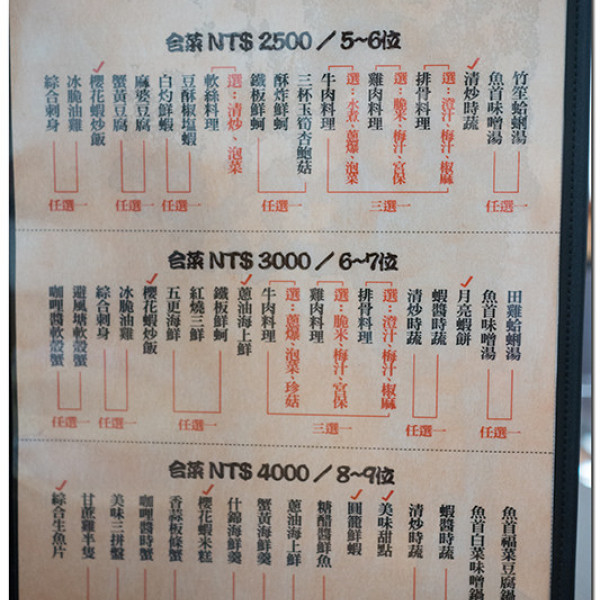 合菜 NT$ 2500 / 5~6位
竹笙蛤蜊湯
魚首味噌湯
任選一
清炒時蔬
選：澄汁、梅汁、椒麻
排骨料理
選：脆米、梅汁、宮保
雞肉料理
選：水煮、蔥爆、泡菜
牛肉料理
三選一
三杯玉筍杏鮑菇
酥炸鮮蚵
鐵板鮮蚵
任選一
選：清炒、泡菜
軟絲料理
豆酥椒塩蝦
白灼鮮蝦
任選一
麻婆豆腐
蟹黃豆腐
任選一
櫻花蝦炒飯
冰脆油雞
綜合刺身
任選一
合菜 NT$ 3000 / 6~7位
田雞蛤蜊湯
魚首味噌湯
任選一
月亮蝦餅
蝦醬時蔬
清炒時蔬
任選一
選：澄汁、梅汁、椒麻
排骨料理
選：脆米、梅汁、宮保
雞肉料理
選：蔥爆、泡菜、珍菇
牛肉料理
三選一
蔥油海上鮮
鐵板鮮蚵
紅燒三鮮
五更海鮮
任選一
櫻花蝦炒飯
冰脆油雞
綜合刺身
任選一
避風塘軟殼蟹
咖哩醬軟殼蟹
任選一
合菜 NT$ 4000 / 8~9位
魚首福菜豆腐鍋
魚首白菜味噌鍋
蝦醬時蔬
清炒時蔬
美味甜點
圓籠鮮蝦
糖醋醬鮮魚
蔥油海上鮮
蟹黃海鮮羹
什錦海鮮羹
櫻花蝦米糕
香蒜板條蟹
咖哩醬時蟹
美味三拼盤
甘蔗雞半隻
綜合生魚片